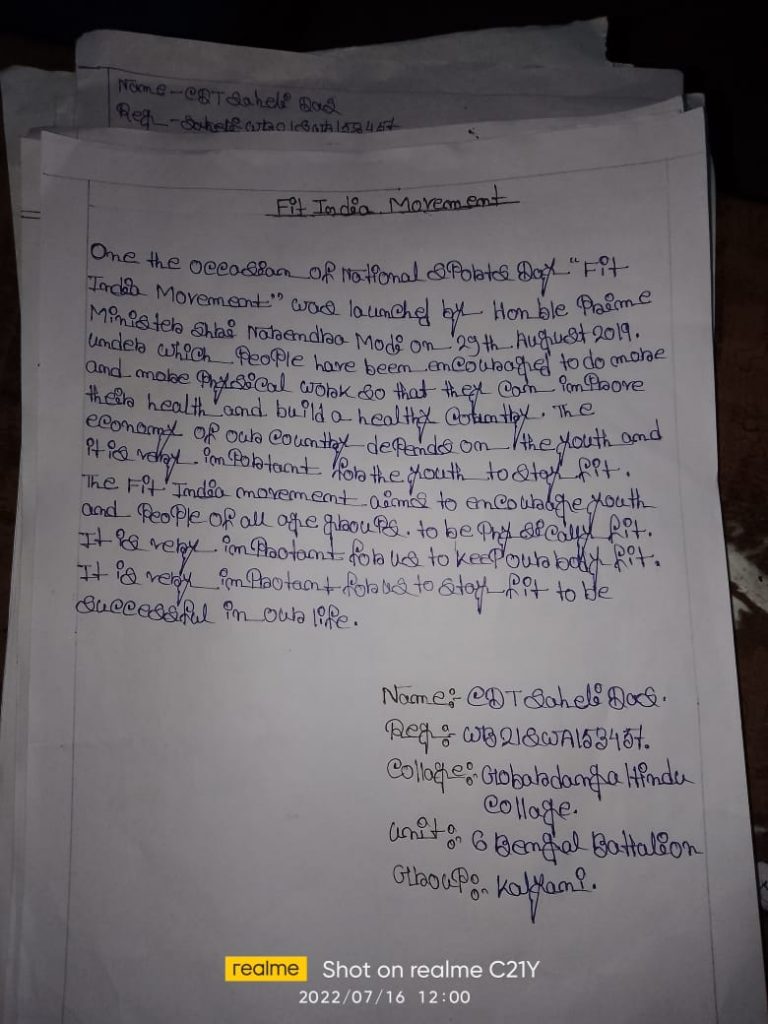 Name - CDT Saheli Das
Reg -
Fit India Movement
One the occassian of National Sports Day "Fit
India Movement" was launched by Hon'ble Prime
Minister Shri Narendra Modi on 29th August 2019.
under which People have been encouraged to do more
and more Physical work so that they can improve
their health and build a healthy Country. The
economy of our country depends on the youth and
it is very important for the youth to stay fit.
The Fit India movement aims to encourage youth
and People of all age groups. to be Physically fit.
It is very improtant for us to keep our body fit.
It is very improtant for us to stay fit to be
successful in our life.
Name:- CDT Saheli Das.
Reg:- WB21SWA153457.
Collage:- Gobardanga Hindu
Collage.
Unit:- 6 Bengal Battalion
Group:- Kalyani.
realme Shot on realme C21Y
2022/07/16 12:00